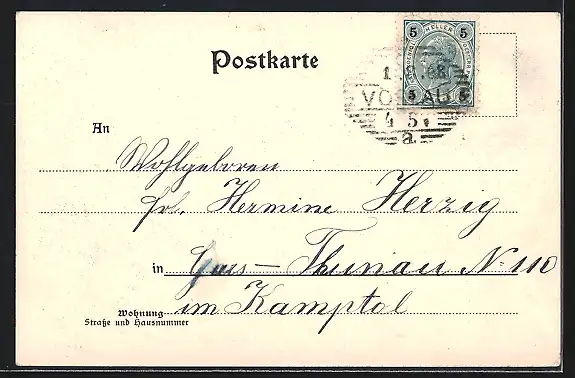 Postkarte
5 HELLER 5
5 5
VÖSLAU
4 5
a
An
Wohlgeboren
Frl. Hermine Herzig
in Gars - Thunau No 110
Wohnung im Kamptal
Straße und Hausnummer